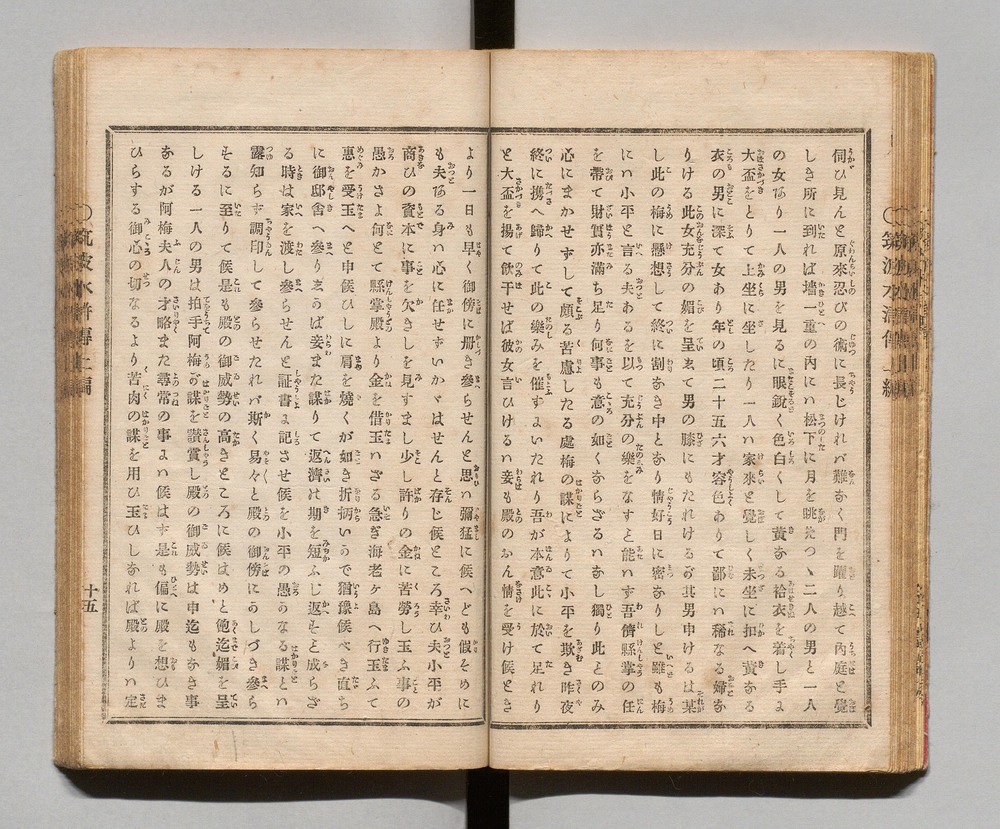 伺ひ見んと原來忍びの術に長じけれバ難なく門を躍り越て內庭と覺
しき所に到れば墻一重の內に松下に月を眺めつゝ二人の男と一人
の女なり一人の男を見るに眼銳く色白くして黃なる袷衣を着し手に
大盃をとりて上坐に坐したり一人ハ家來と覺しく末坐に扣へ黃なる
衣の男に深て女あり年の頃二十五六才容色ありて鄙にハ稀なる婦な
りける此女充分の媚を呈ゑて男の膝にもたれけるが其男申けるは某
し此の梅に懸想して終に割なき中となり情好日に密なりしと雖も梅
にハ小平と言る夫あるを以て充分の樂をなすと能ハず吾儕縣掌の任
を帶て財寳亦滿ち足り何事も意の如くならざるハなし獨り此とのみ
心にまかせずして頗る苦慮したる處梅の謀によりて小平を欺き昨夜
終に携へ歸りて此の樂みを催すよいたれり吾が本意此に於て足れり
と大盃を揚て飮干せば彼女言ひけるハ妾も殿のおん情を受け候とき
より一日も早く御傍に册き參らせんと思ハ彌猛に候へども假そめに
も夫ある身ハ心に任せずいかゞはせんと存じ候ところ幸ひ夫小平が
商ひの資本に事を欠きしを見すまし少し許りの金に苦勞し玉ふ事の
愚かさよ何とて縣掌殿より金を借玉ハざる急ぎ海老ヶ島へ行玉ふて
惠を受玉へと申候ひしに肩を燒くが如き折柄いうで猶豫候べき直ち
に御邸舍へ參りまうば妾また謀りて返濟は期を短ふし返そと成らざ
る時は家を渡し參らせんと証書よ記させ候を小平の愚うなる謀とハ
露知らず調印して參らせたれバ斯く易々と殿の御傍にうしづき參ら
そるに至りて候是も殿の御威勢の高きところに候はめと飽迄媚を呈
しける一人の男は拍手阿梅が謀を讃賞し殿の御威勢は申迄もなき事
なるが阿梅夫人の才略また尋常の事よハ候はず是も偏に殿を想ひま
ひらする御心の切なるより苦肉の謀を用ひ玉ひしなれば殿よりハ定
十五